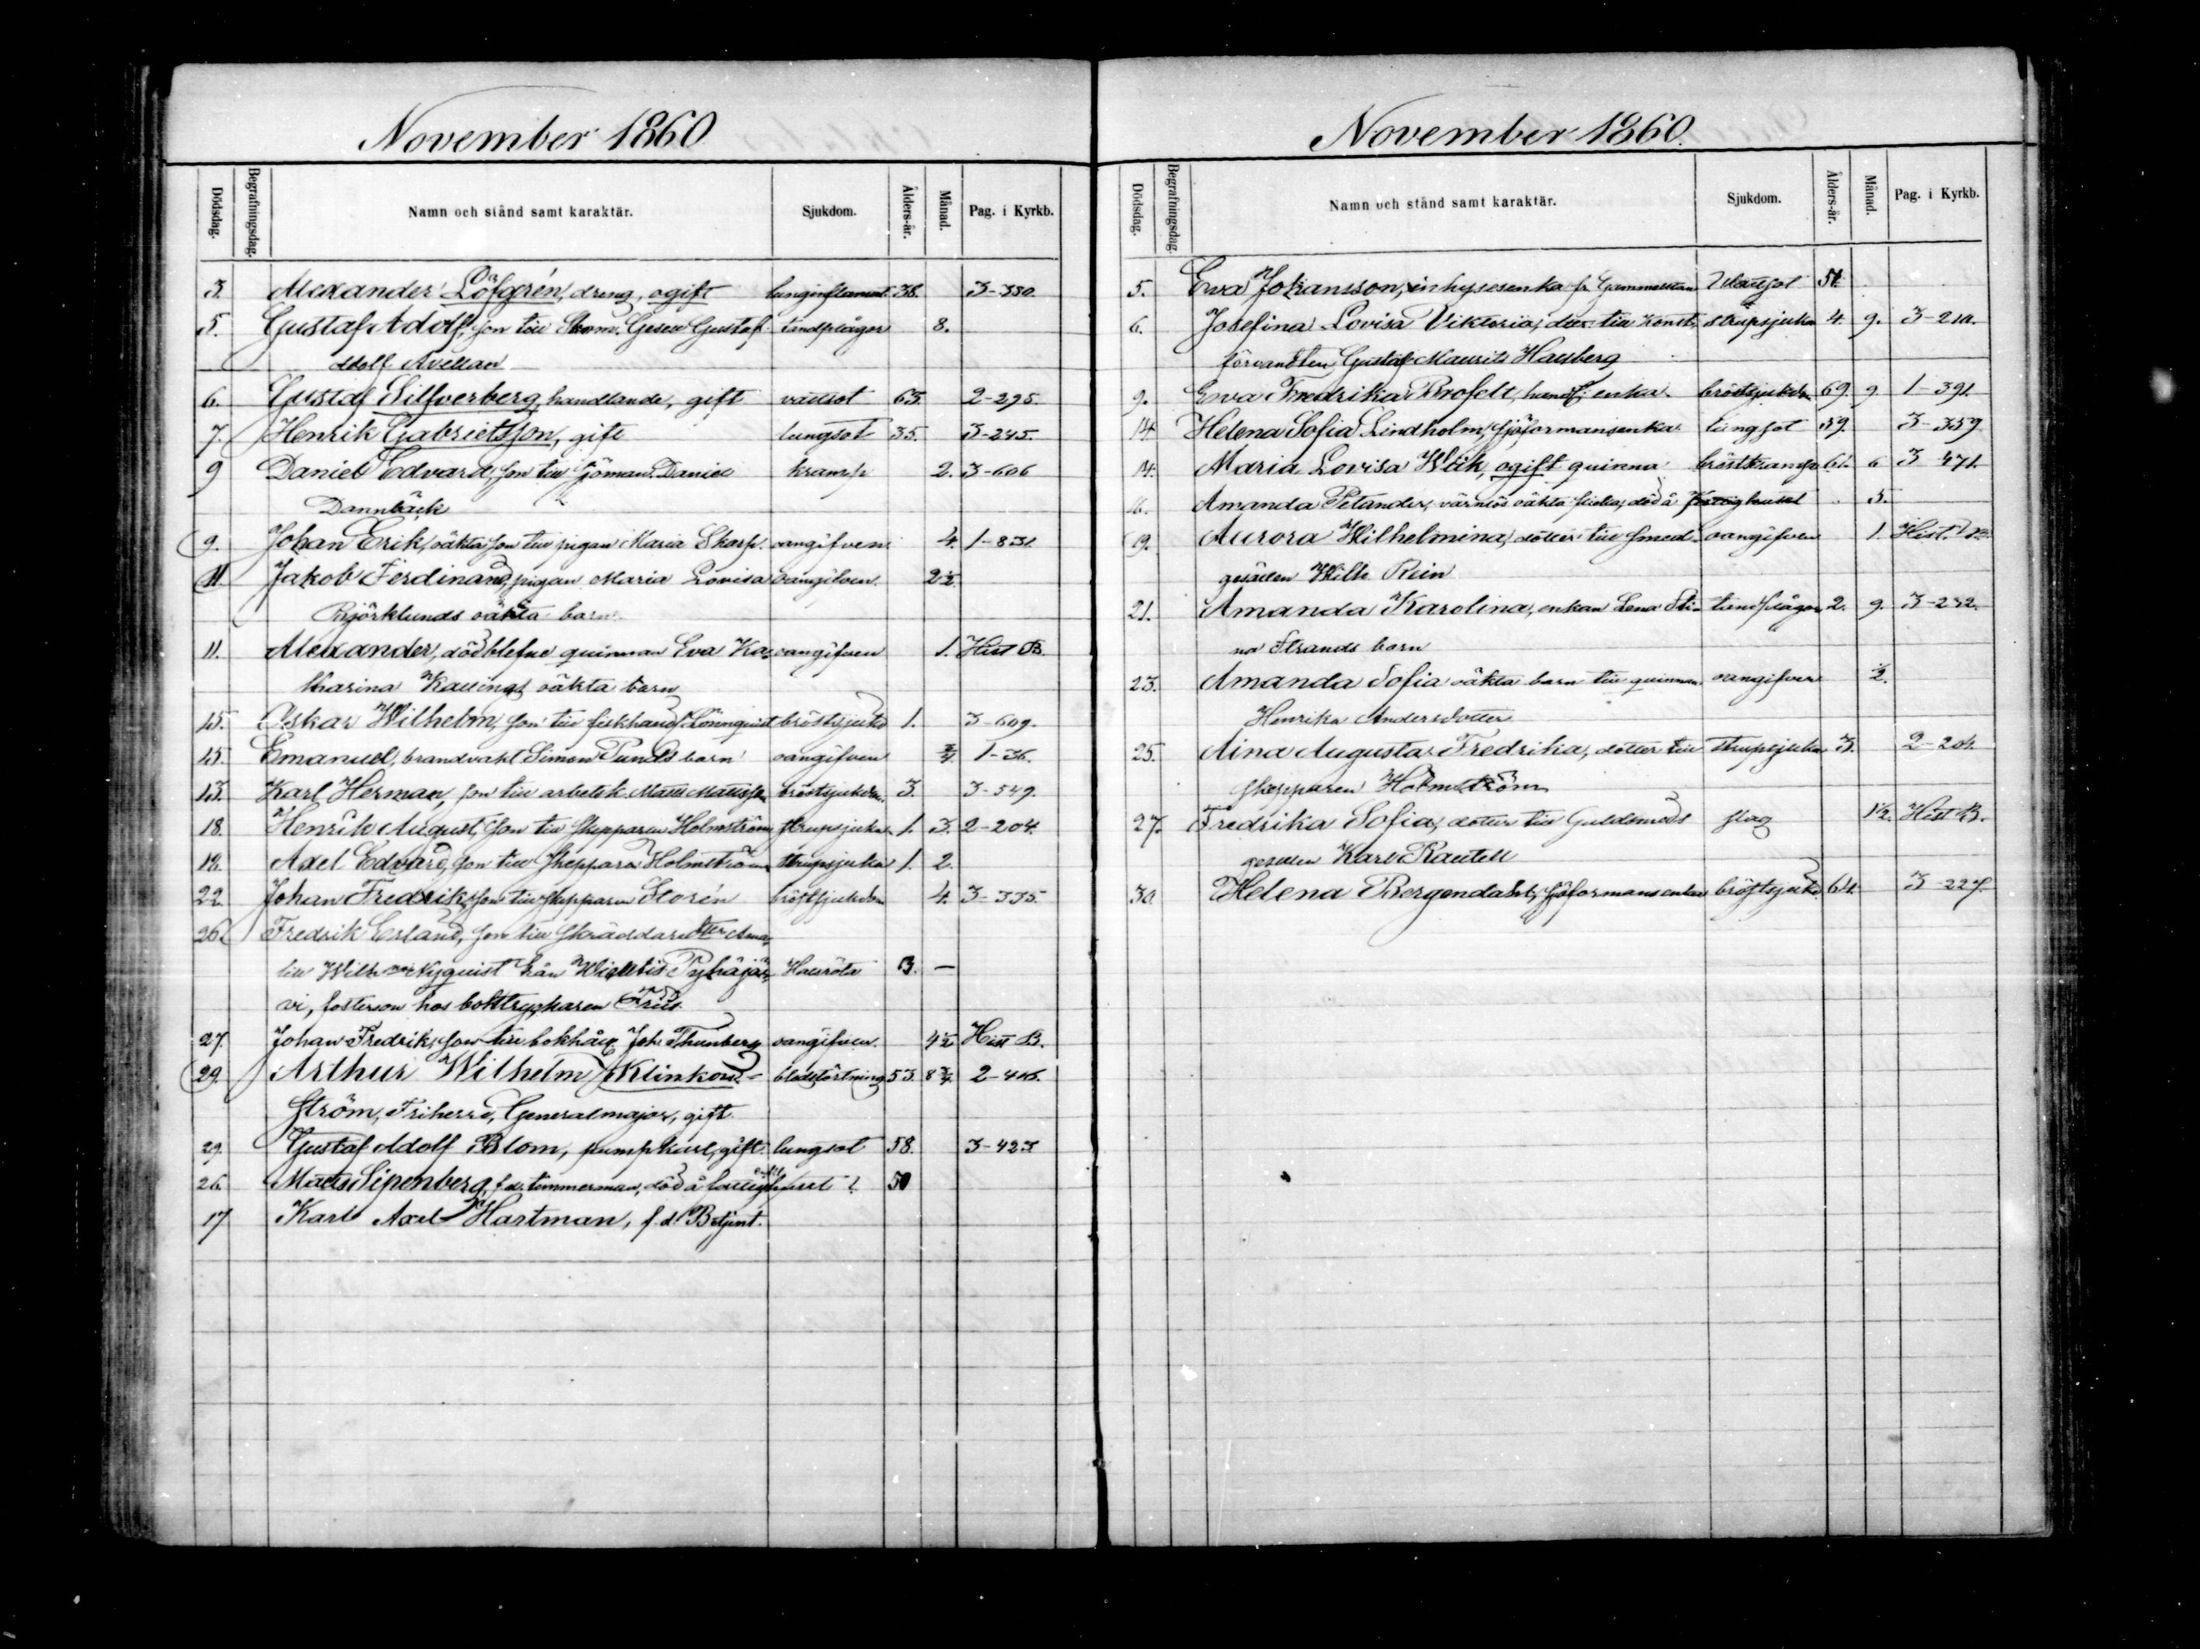 November 1860
Dödsdag. Begrafningsdag. Namn och stånd samt karaktär. Sjukdom. Ålders-år. Månad. Pag. i Kyrkb.
3. Alexander Löfgrén, dreng, ogift 38. 3-330
5. Gustaf Adolf, son till Skom. Gesell Gustaf tandplågor 8.
Adolf Avellan
6. Gustaf Silfverberg, handlande, gift 63. 2-295
7. Henrik Gabrielsson, gift lungsot 35. 3-245.
9 Daniel Edvard, son till sjöman. Daniel kramp 2. 3-606
Dannbäck
9. Johan Erik, oäkta son till pigan Maria Skarp. oangifven 4. 1-831.
11. Jakob Ferdinand, pigan Maria Lovisa oangifven 2½
Björklunds oäkta barn
11. Alexander, dödblefne quinnan Eva Ka- oangifven 1. Hist B.
tharina Kallings oäkta barn
15. Oskar Wilhelm, son till fiskhandl. Lönnquist bröstsjukd 1. 3-609.
15. Emanuel, brandvakt Simon Punds barn oangifven ¾ 1-36.
13. Karl Herman, son till arbetsk. Matts Mattsson bröstsjukdom 3. 3-549.
18. Henrik August, son till Skepparen Holmström strupsjuka 1. 3. 2-204.
12. Axel Edvard, son till Skeppare Holmström strupsjuka 1. 2.
22. Johan Fredrik, son till Skepparen Storén bröstsjukdom 4. 3-335.
26. Fredrik Erland, son till Skräddare
till Wilh Nyquist från Pyhäjär-
vi, fosterson hos boktryckaren
27. Johan Fredrik, son till bokhåll. Joh. Thunberg oangifven. 4½ Hist B.
29. Arthur Wilhelm Klinkow- blodstörtning 53. 8¾
ström, Friherre, Generalmajor, gift
29. Gustaf Adolf Blom, pumpkarl, gift lungsot 58. 3-423
26. Matts Sipenberg, f.d. timmerman, död å fattighuset 50
17 Karl Axel Hartman, f.d. Betjent.
November 1860.
Dödsdag. Begrafningsdag Namn och stånd samt karaktär. Sjukdom. Ålders-år. Månad. Pag. i Kyrkb.
5. Eva Johansson, inhysesenka fr Gammelstan
6. Josefina Lovisa Viktoria, dtr till Konst- strupsjuka 4. 9.
förvandten Gustaf Maurits Hallberg
9. Eva Fredrika Brofelt, handl. enka bröstsjukdom 69. 9. 1-391.
14 Helena Sofia Lindholm, sjöformansenka lungsot 59. 3-359
14. Maria Lovisa Wiik, ogift quinna bröstkramp 61. 6 3-471.
16. Amanda Petander, värnlös oäkta flicka, död å Fattighuset 5.
19. Aurora Wilhelmina, dotter till smed- oangifven 1. Hist. B.
gesällen Wilh Rein
21. Amanda Karolina, enkan Lena Sti- tandplågor 2. 9. 3-232.
na Strands barn
23. Amanda Sofia oäkta barn till quinnan oangifven ½.
Henrika Andersdotter
25. Aina Augusta Fredrika, dotter till strupsjuka 3. 2-204.
Skepparen Holmström
27. Fredrika Sofia, dotter till Guldsmeds slag 1½. Hist B.
gesällen Karl
30. Helena Bergendahl, sjöformansenka bröstsjukd. 64. 3-227.